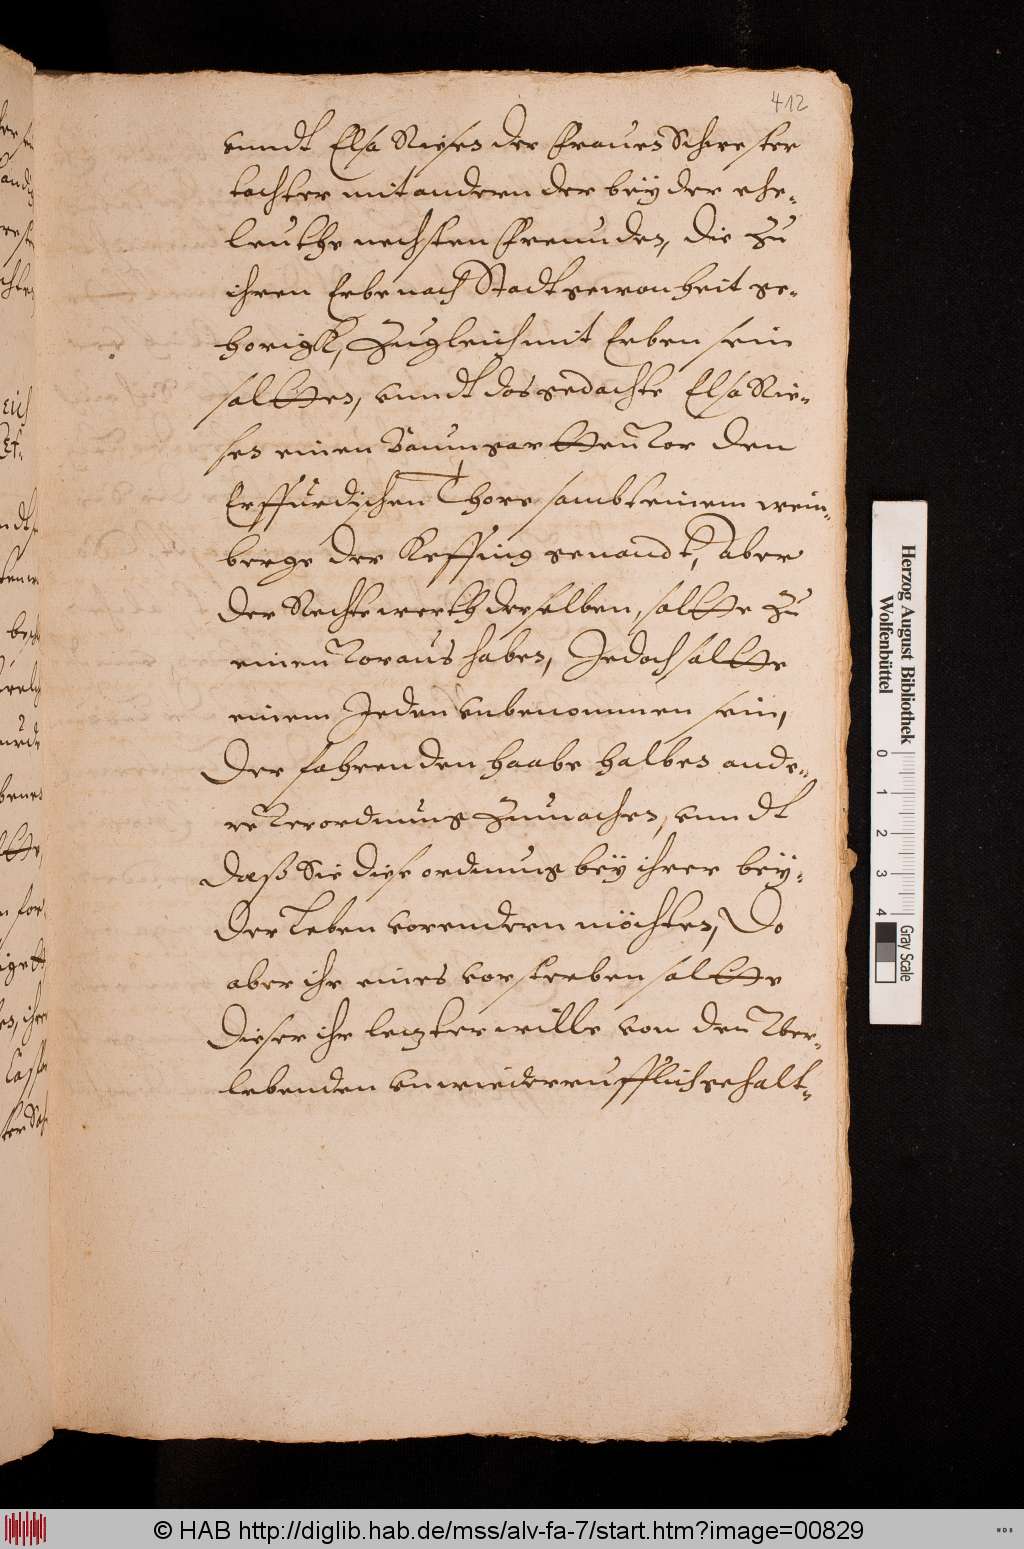 412
vnndt Elsa Riesen der Frauen Schwester
tochter mit andern der beÿder ehe-
leuthe nechsten Freunden, die zu
ihren Erbe nach Stadtgewonheit ge-
horigk, zugleich mit Erben sein
soltten, vnndt das gedachte Elsa Rie-
sen einen Baumgartten vor den
Erffurdischen Thore sambt einem wein-
berge der Kessing genandt, aber
der Rechte werth derselben, soltte zu
einen voraus haben, Jedoch soltte
einem Jeden vnbenommen sein,
Der fahrenden haabe halben ande-
re verordnung zumachen, vnndt
daß Sie diese ordnung beÿ ihrer beÿ-
der leben vorendern möchten, Do
aber ihr eines vorsterben soltte
dieser ihr letzter wille von den vber-
lebenden vnwiederrufflich gehalt-
Herzog August Bibliothek
Wolfenbüttel
0 1 2 3 4
Gray Scale
© HAB http://diglib.hab.de/mss/alv-fa-7/start.htm?image=00829